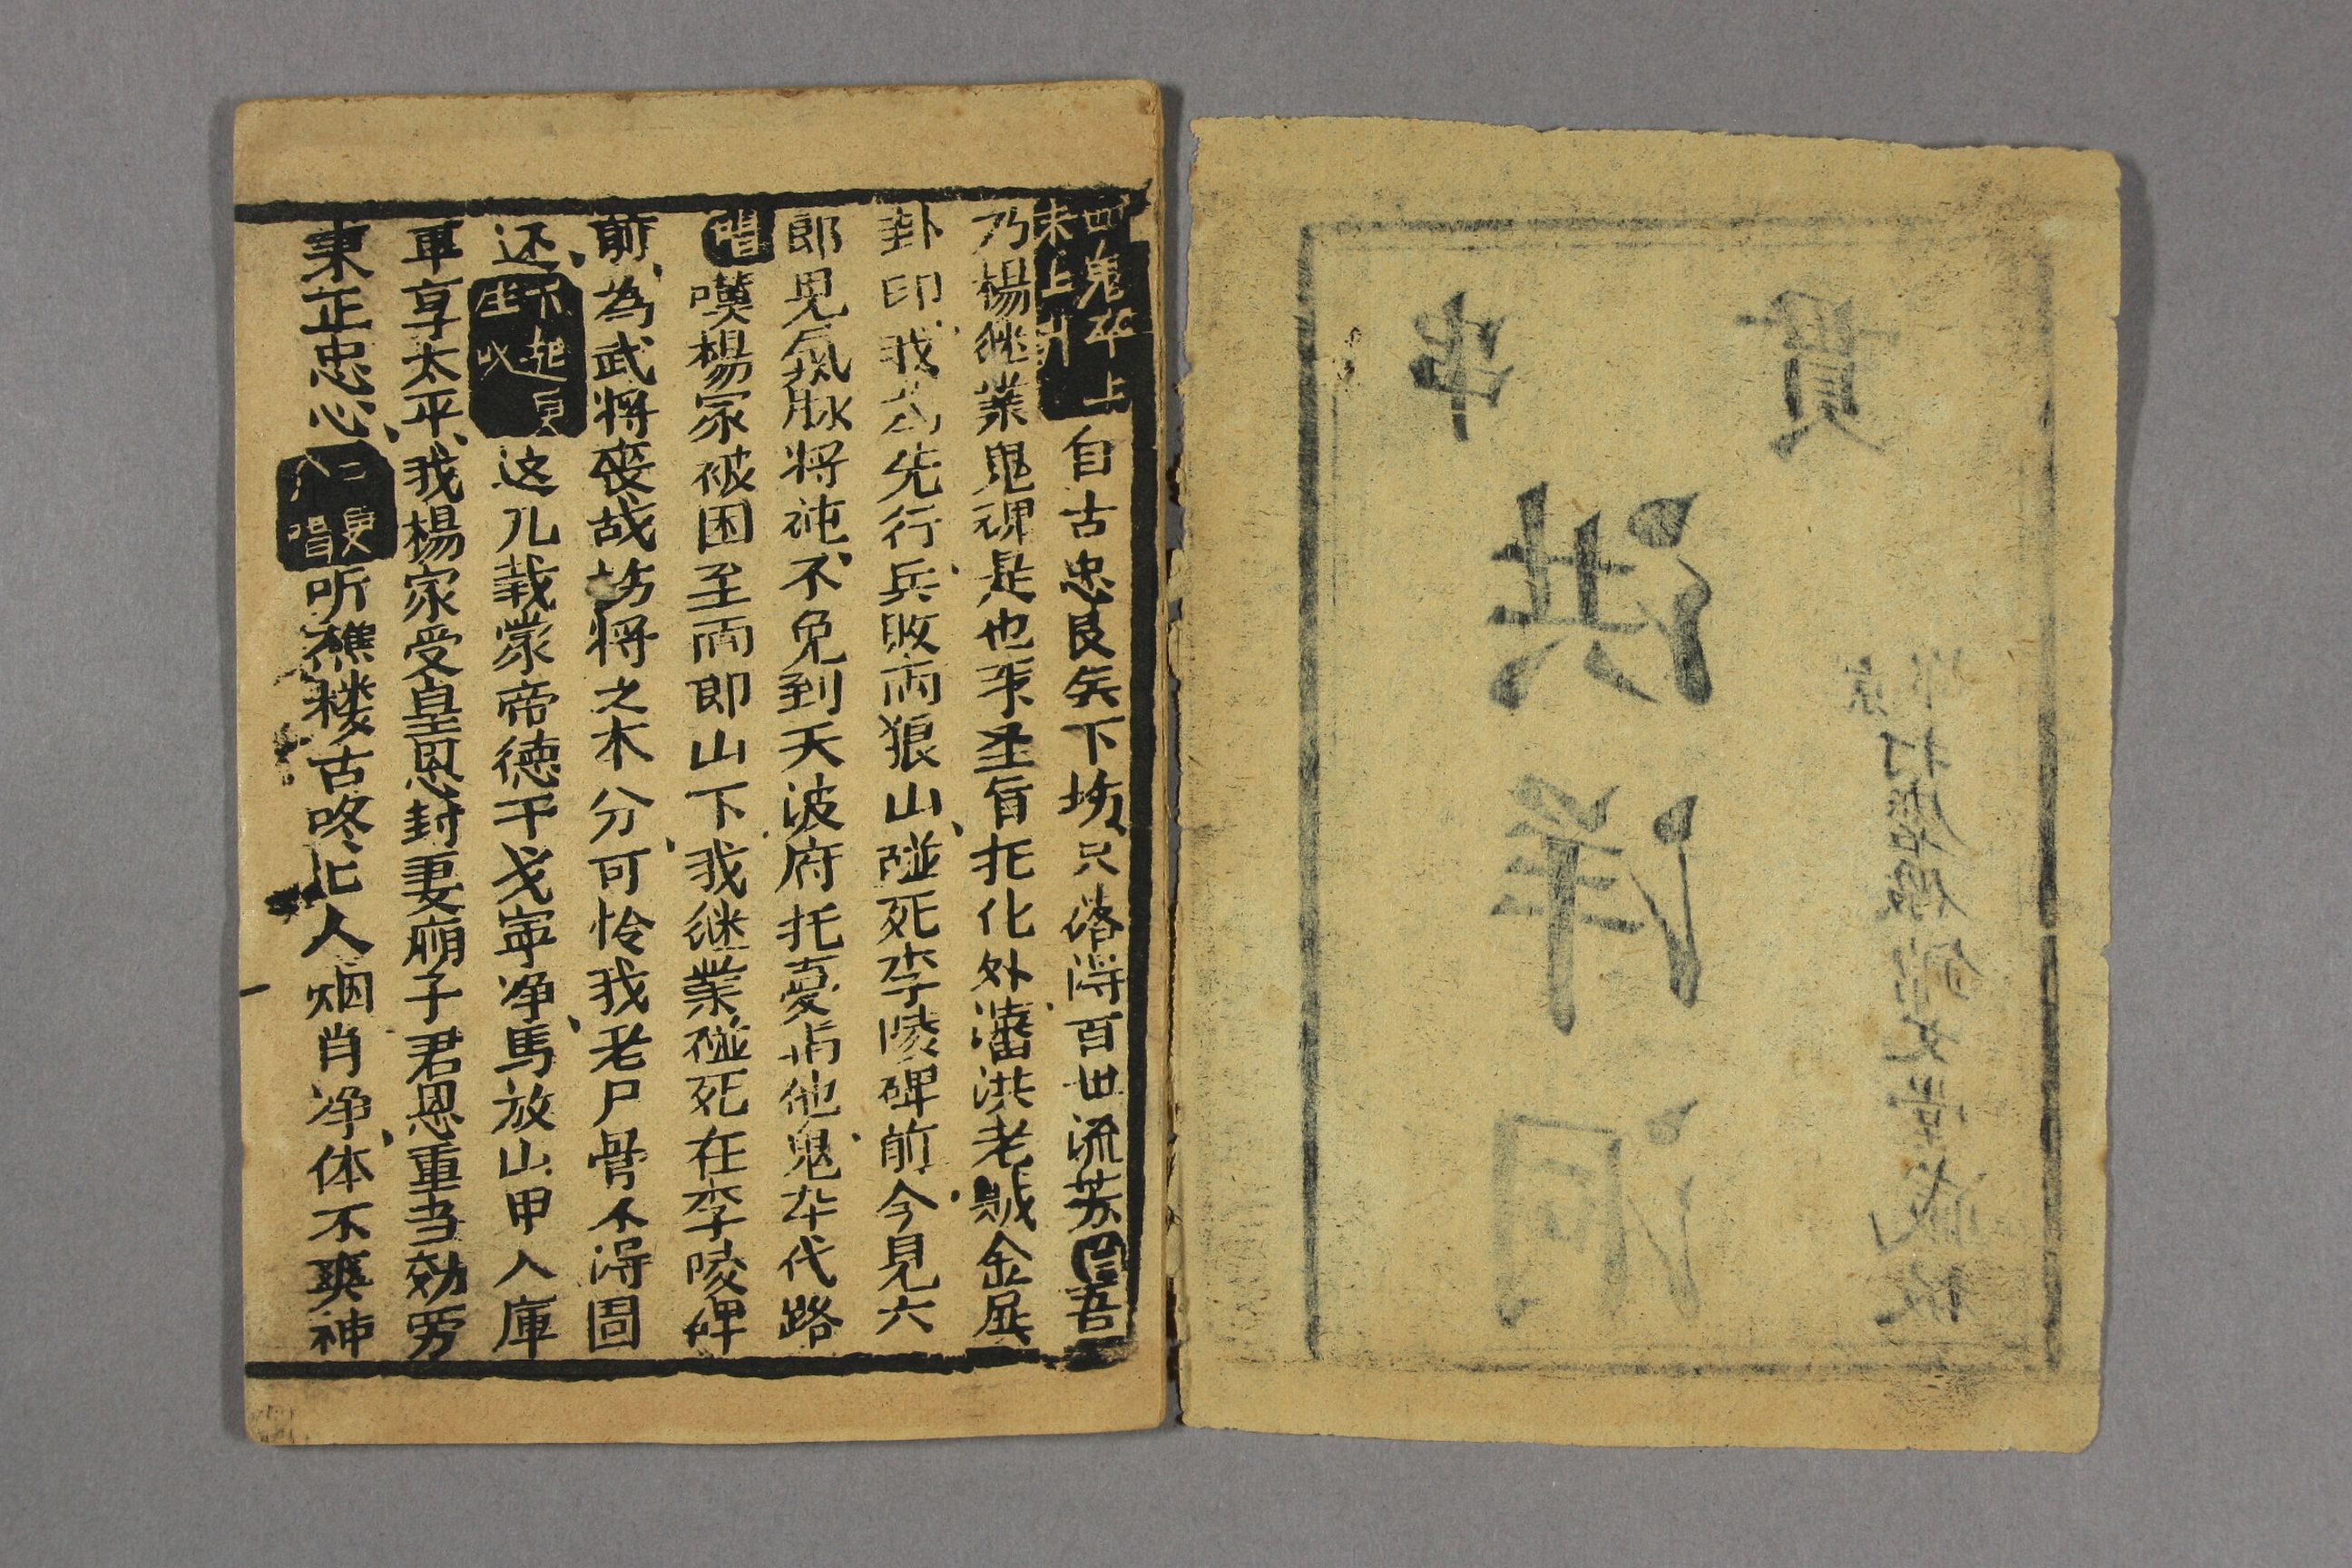 貫串
洪洋洞
京都打磨廠
文堂
板
四鬼卒上
末上
自古忠良矣下塲只落淂百世流芳
吾
乃楊継業鬼魂是也
圣旨托化外潘洪老贼金展
卦印我為先行兵敗両狼山碰死李陵碑前今見六
郎見氣脉将
不免到天波府托夣
他鬼卒代路
唱
嘆楊家被困至両即山下我継業碰死在李陵碑
前為武将喪战塲将之木分可怜我老尸骨不淂囬
还
生
这几载蒙帝德干戈寕净馬放山甲入庫
軍享太平我楊家受皇恩封妻廕子君恩重当効劳
秉正忠心
二更
唱
听樵楼古咚
人烟肖净体不爽神